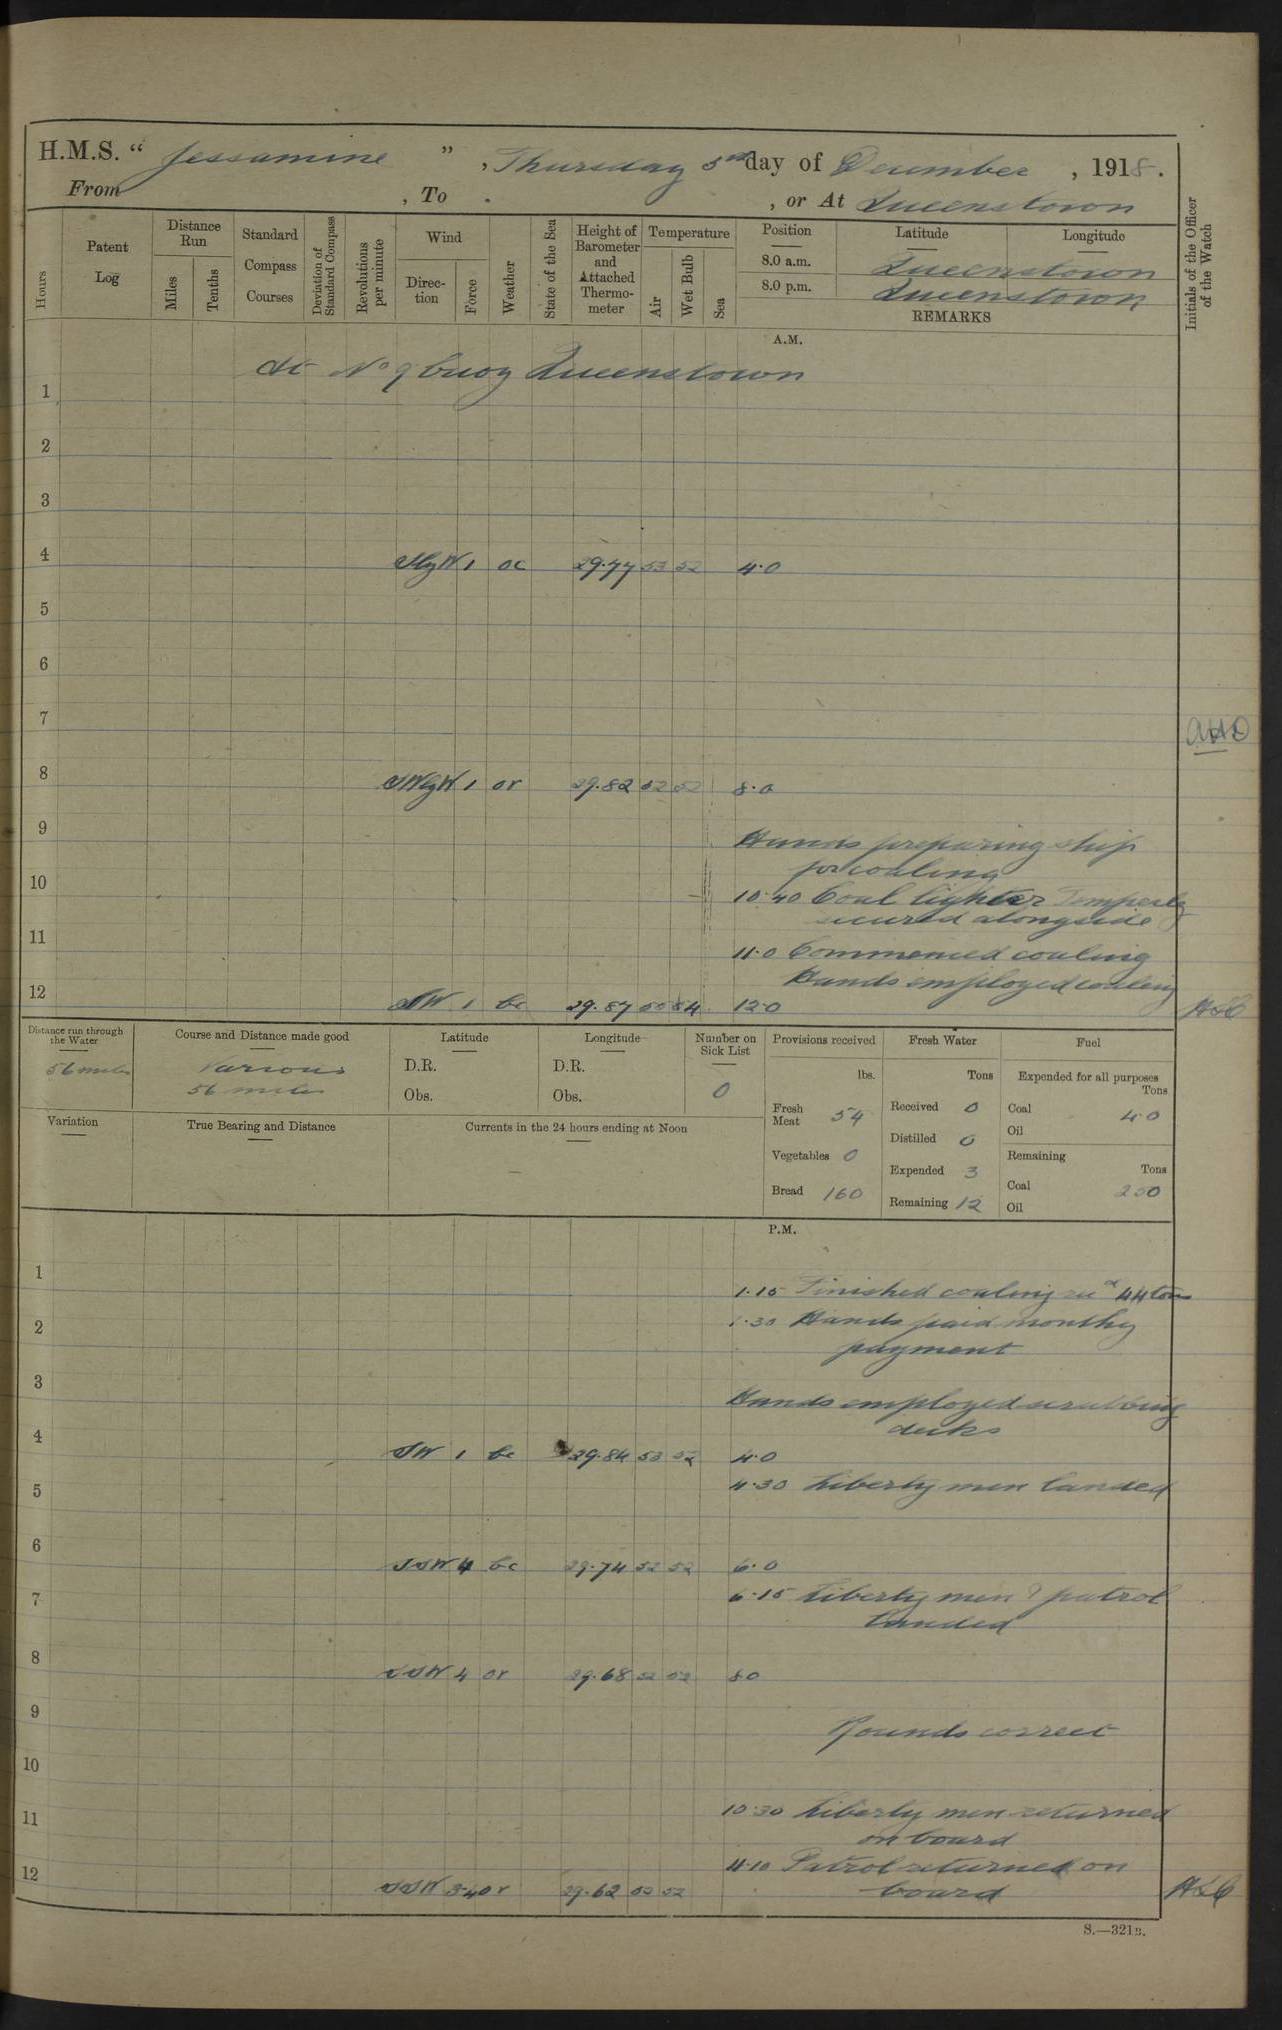 H.M.S. “ Jessamine ” , Thursday 5th day of December , 1918.
From , To . , or At Queenstown
Hours
Patent Log
Distance Run
Miles
Tenths
Standard Compass Courses
Deviation of Standard Compass
Revolutions per minute
Wind
Direc-tion
Force
Weather
State of the Sea
Height of Barometer and Attached Thermo-meter
Temperature
Air
Wet Bulb
Sea
Position
Latitude
Longitude
8.0 a.m. Queenstown
8.0 p.m. Queenstown
REMARKS
Initials of the Officer of the Watch
A.M.
At No 9 buoy Queenstown
1
2
3
4 SbyW 1 oc 29.77 53 52 4.0
5
6
7
AHD
8 SWbyW 1 or 29.82 52 52 8.0
9
Hands preparing ship
for coaling
10
10.40 Coal lighter
secured alongside
11
11.0 Commenced coaling
Hands employed coaling
12 SW 1 bc 29.87 55 54 12.0
Distance run through the Water
56 miles
Course and Distance made good
Various
56 miles
Latitude
D.R.
Obs.
Longitude
D.R.
Obs.
Number on Sick List
0
Provisions received
lbs.
Fresh Meat 54
Vegetables 0
Bread 160
Fresh Water
Tons
Received 0
Distilled 0
Expended 3
Remaining 12
Fuel
Expended for all purposes
Tons
Coal 40
Oil
Remaining
Tons
Coal 250
Oil
Variation
True Bearing and Distance
Currents in the 24 hours ending at Noon
P.M.
1
1.15 Finished coaling recd 44 tons
2
1.30 Hands paid monthly
payment
3
Hands employed scrubbing
decks
4 SW 1 bc 29.84 53 52 4.0
4.30 Liberty men landed
5
6 SSW 4 bc 29.74 52 52 6.0
7
6.15 Liberty men & patrol
landed
8 SSW 4 or 29.68 52 52 8.0
9
Rounds correct
10
11
10.30 Liberty men returned
on board
11.10 Patrol returned on
board
12 SSW 3-4 or 29.62 52 52
S.—321B.